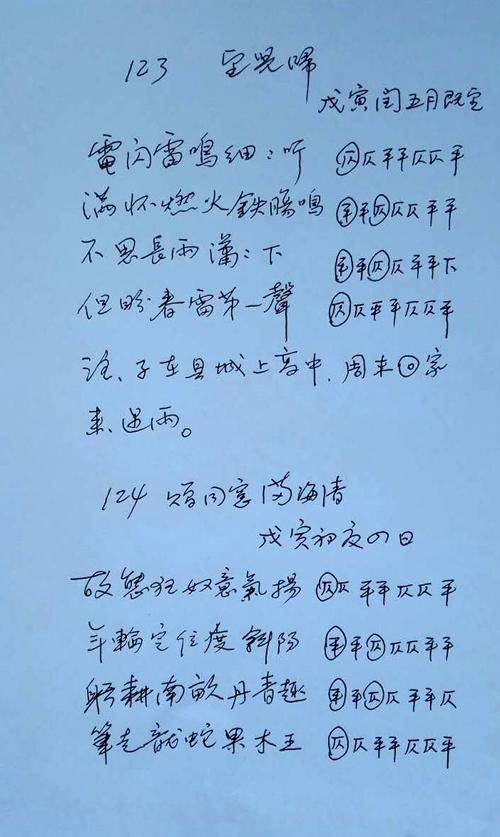 123 望兒歸
戊寅闰五月既望
電闪雷鳴细:听 仄仄平平仄仄平
满怀燃火鉄腸鳴 平平仄仄仄平平
不思長雨瀟:下 平平仄仄平平下
但盼春雷第一聲 仄仄平平仄仄平
注、子在县城上高中,周末回家
来遇雨。
124 赠同窓满海清
戊寅初夜四日
故態狂奴意氣揚 仄仄平平仄仄平
年輪定位度斜阳 平平仄仄仄平平
躬耕南畝丹青趣 平平仄仄平平仄
筆走龍蛇果木王 仄仄平平仄仄平